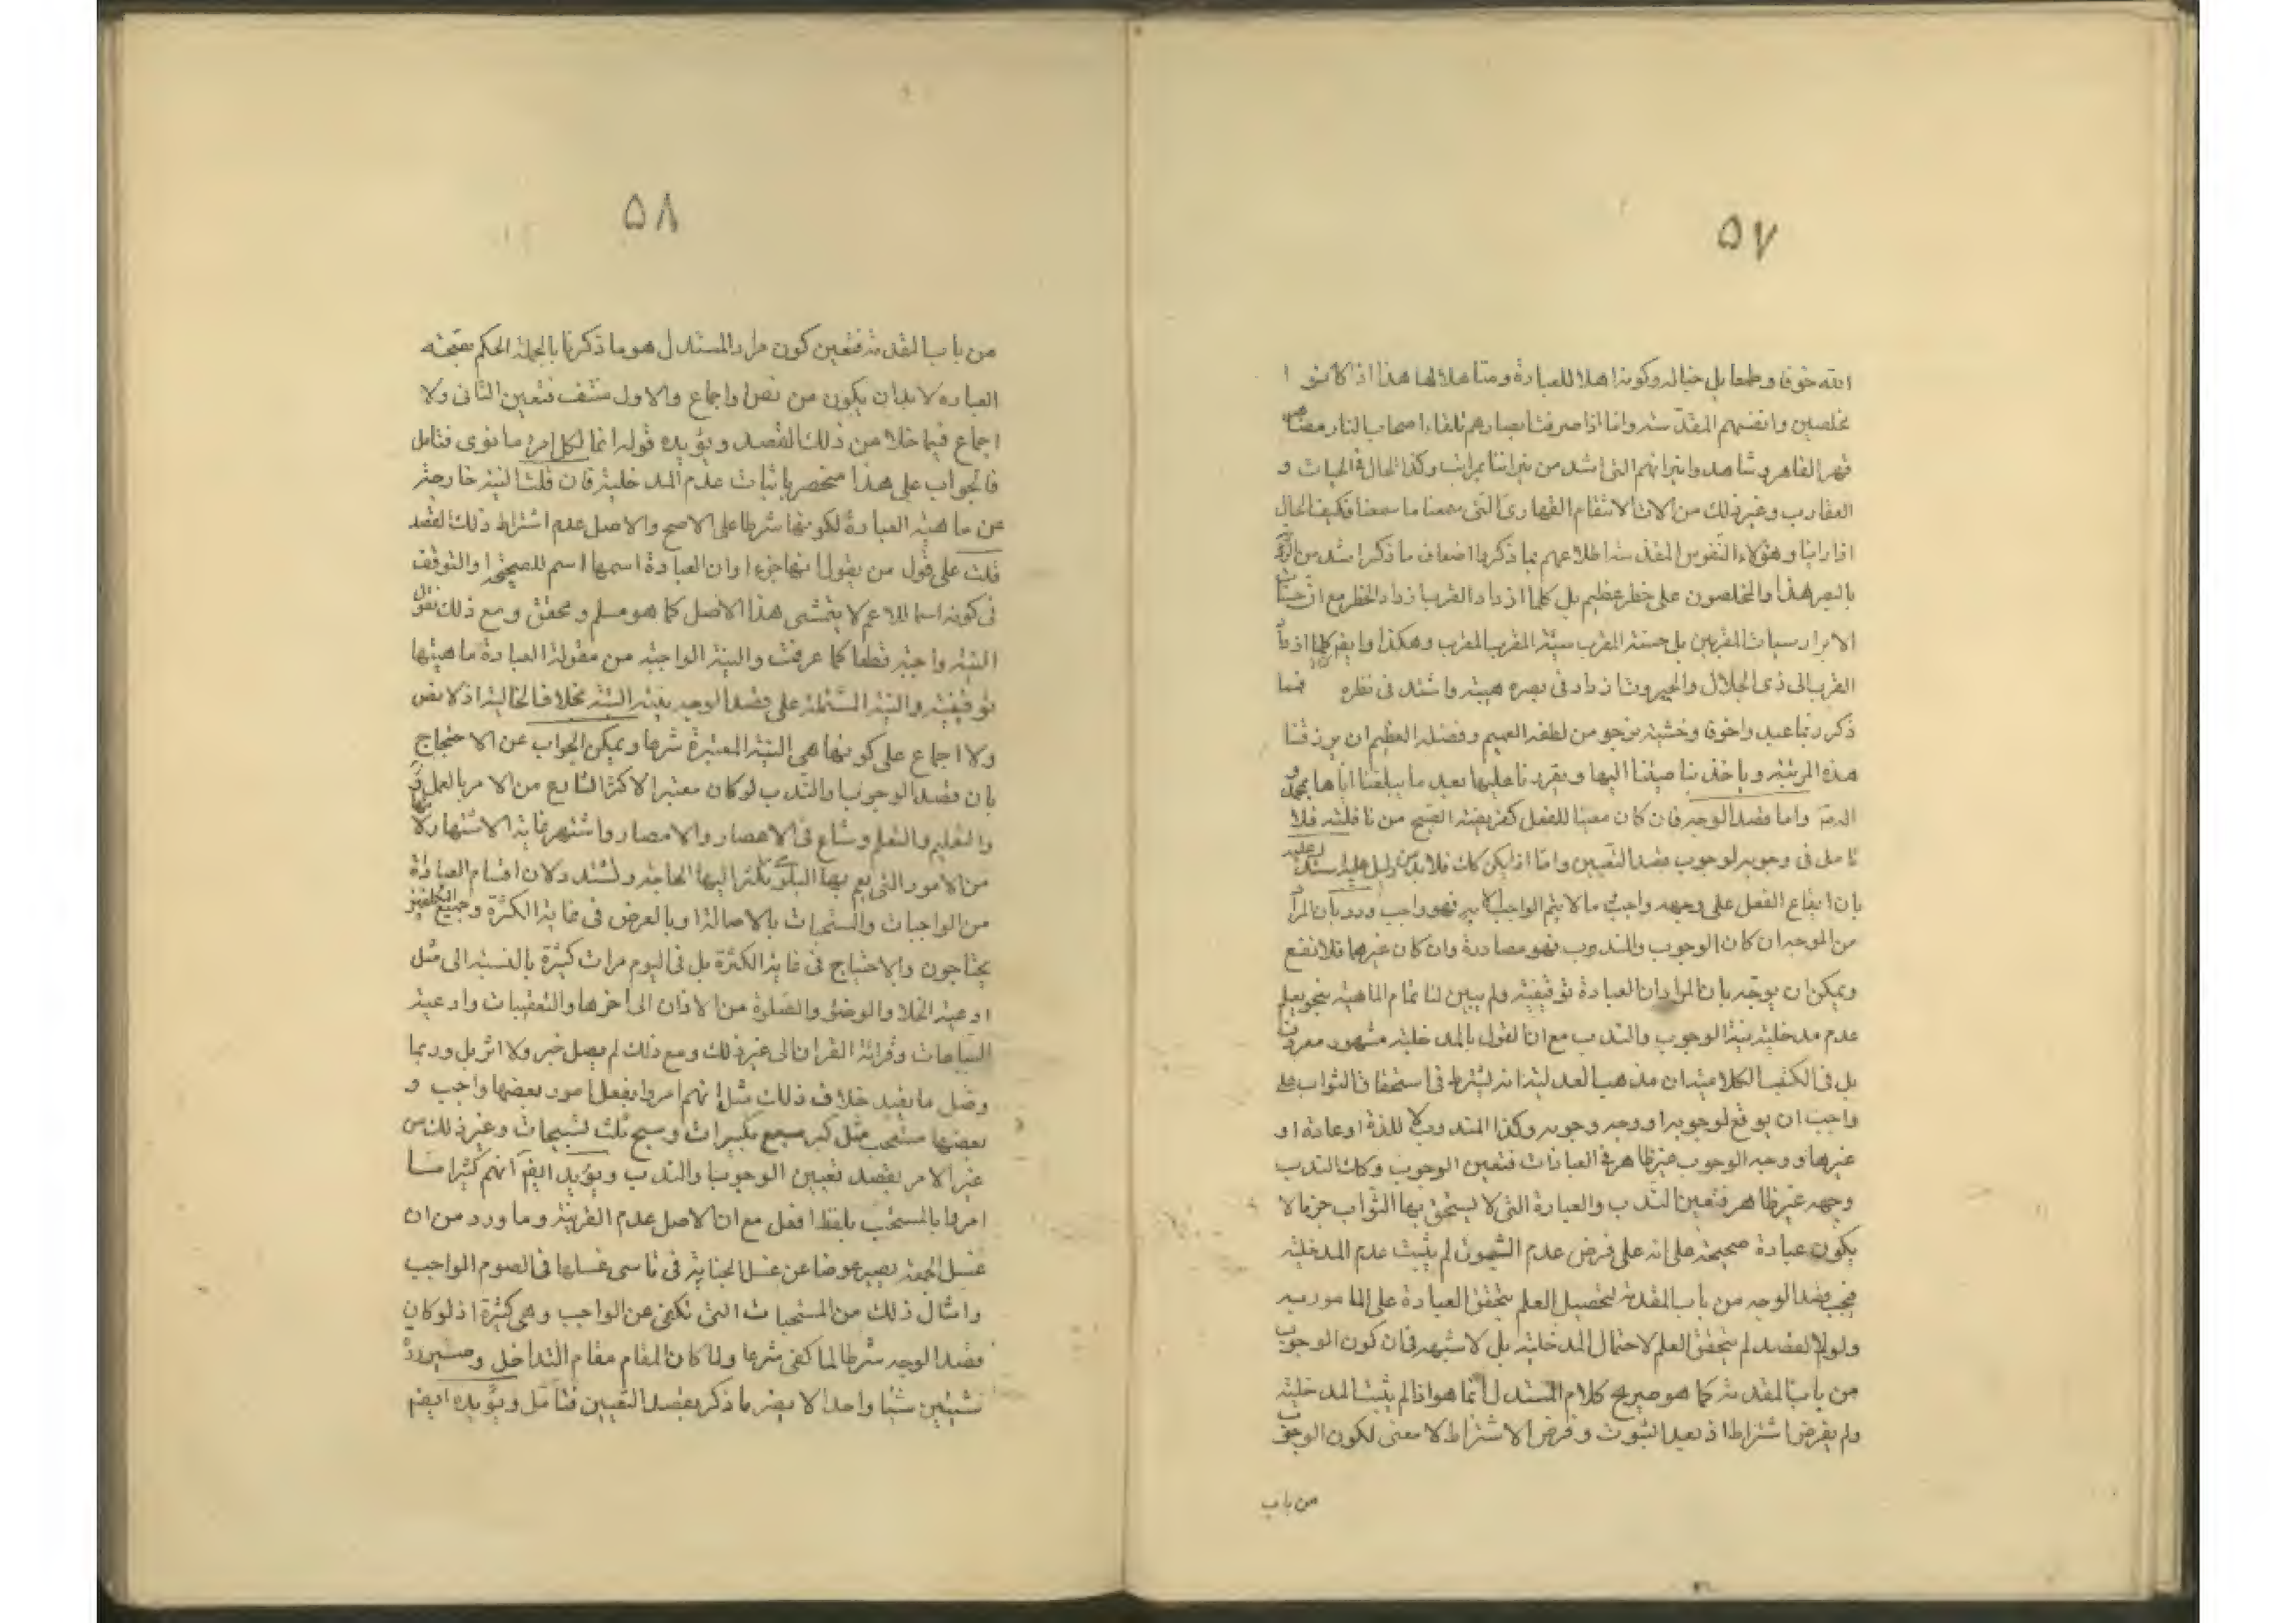 ۵۷
الله خوفا وطمعا بل حبا له وكونه اهلا للعبادة ومتاهلا لها هذا اذا كانوا
مخلصين وانفسهم المقدسة واما اذا صرفت ابصارهم تلقاء اصحاب النار
قهر القاهر وشاهدوا نيرانهم التى اشد من نيراننا بمراتب وكذا الحال فى الحيات و
العقارب وغير ذلك من الات الانتقام القهارى التى سمعنا ما سمعنا فكيف الحال
اذا راينا وهؤلاء النفوس المقدسة اطلاعهم بما ذكر اضعاف ما ذكر اشد من
بالبصر هذا والمخلصون على خطر عظيم بل كلما ازداد القرب ازداد الخطر مع ان حسنات
الابرار سيئات المقربين بل حسنة المقرب سيئة المقرب المقرب وهكذا وايضا كلما ازداد
القرب الى ذى الجلال والجبروت ازداد فى بصره هيبته واشتد فى نظره فما
ذكر ربما عبد واخوفا وخشية نرجو من لطفه العميم وفضله العظيم ان يرزقنا
هذه المرتبة وياخذ بناصيتنا اليها ويقرنا عليها بعد ما يبلغنا اياها بمحمد و
اله واما قصد الوجه فان كان معينا للفعل كفريضة الصبح من نافلته فلا
تامل فى وجوبه لوجوب قصد التعيين واما اذا لم يكن كك فلا بد من دليل عليه استدل عليه
بان ايقاع الفعل على وجهه واجب وما لا يتم الواجب الا به فهو واجب ورد بان المراد
من الوجه ان كان الوجوب والندب فهو مصادرة وان كان غيرهما فلا نفع
ويمكن ان يوجه بان المراد ان العبادة توقيفية ولم يبين لنا تمام الماهية بنحو يعلم
عدم مدخلية نية الوجوب والندب مع ان القول بالمدخلية مشهور معروف
بل فى الكتب الكلامية ان مذهب العدلية انه يشترط فى استحقاق الثواب على
واجب ان يوقع لوجوبه او وجه وجوبه وكذا المندوب لا للذة او عادة او
غيرها ووجه الوجوب غير ظاهر فى العبادات فتعين الوجوب وكك الندب
وجهه غير ظاهر فتعين الندب والعبادة التى لا يستحق بها الثواب جزما لا
يكون عبادة صحيحة على انه على فرض عدم الثبوت لم يثبت عدم المدخلية
فيجب قصد الوجه من باب المقدمة لتحصيل العلم بتحقق العبادة على المامور به
ولولا القصد لم يتحقق العلم لاحتمال المدخلية بل لا شبهه فان كون الوجوب
من باب المقدمة كما هو صريح كلام المستدل انما هو اذا لم يثبت المدخلية
ولم يفرض اشتراط اذ بعد الثبوت وفرض الاشتراط لا معنى لكون الوجوب
من باب
۵۸
من باب المقدمة فتعين كون مراد المستدل هو ما ذكرنا بالجملة الحكم بصحة
العباده لا بد ان يكون من نص او اجماع والاول منتف فتعين الثانى ولا
اجماع فيما خلا من ذلك القصد ويؤيده قوله انما لكل امرء ما نوى فتامل
فالجواب على هذا منحصر باثبات عدم المدخلية فان قلت النية خارجة
عن ماهية العبادة لكونها شرطا على الاصح والاصل عدم اشتراط ذلك القصد
قلت على قول من يقول انها جزء او ان العبادة اسمها اسم للصحيحة او التوقف
فى كونه اسما للاعم لا يتمشى هذا الاصل كما هو مسلم ومحقق ومع ذلك نقول
النية واجبة قطعا كما عرفت والنية الواجبة من مقولة العبادة ماهيتها
توقيفية والنية المشتملة على قصد الوجه بنية البتة بخلاف الخالية اذ لا نص
ولا اجماع على كونها هى النية المعتبرة شرعا ويمكن الجواب عن الاحتجاج
بان قصد الوجوب والندب لو كان معتبرا لاكثر الشارع من الامر بالعمل
والتعليم والتعلم وشاع فى الاعصار والامصار واشتهر غاية الاشتهار لانها
من الامور التى يعم بها البلوى يكثر اليها الحاجة وتشتد ولان اقسام العبادة
من الواجبات والمستحبات بالاصالة او بالعرض فى غاية الكثرة وجميع المكلفين
يحتاجون والاحتياج فى غاية الكثرة بل فى اليوم مرات كثيرة بالنسبة الى مثل
ادعية الخلا والوضؤ والصلوة من الاذان الى اخرها والتعقيبات وادعية
الساعات وقرائة القران الى غير ذلك ومع ذلك لم يصل خبر ولا اثر بل وربما
وصل ما يفيد خلاف ذلك مثل انهم امروا بفعل امور بعضها واجب و
بعضها مستحب مثل كبر سبع تكبيرات وسبح ثلث تسبيحات وغير ذلك من
غير الامر بقصد تعيين الوجوب والندب ويؤيد ايضا انهم كثيرا ما
امروا بالمستحب بلفظ افعل مع ان الاصل عدم القرينة وما ورد من ان
غسل الجمعة يصير عوضا عن غسل الجنابة فى ناسى غسلها فى الصوم الواجب
وامثال ذلك من المستحبات التى تكفى عن الواجب وهى كثيرة اذ لو كان
قصد الوجه شرطا لما كفى شرعا ولما كان المقام مقام التداخل وصيرورة
شيئين شيئا واحدا لا يضر ما ذكر بقصد التعيين فتامل ويؤيده ايضا